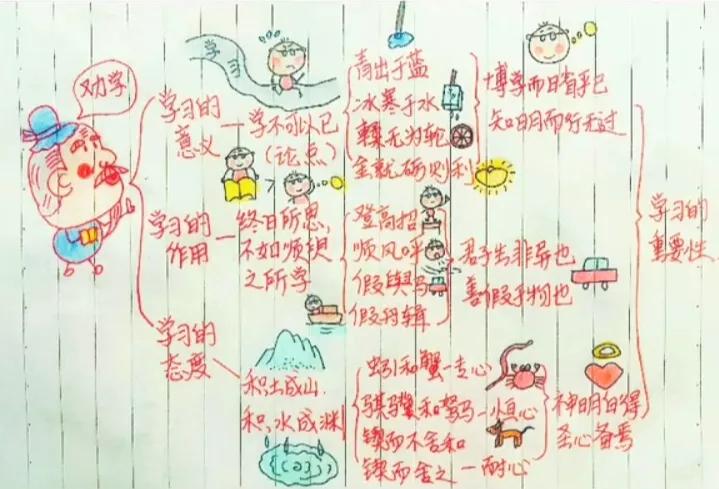 劝学
学习
学习的
意义
学不可以已
(论点)
青出于蓝
冰寒于水
輮无为轮
金就砺则利
博学而日省乎己
知明而行无过
学习的
作用
终日所思,
不如须臾
之所学
登高招
顺风呼
假舆马
假舟辑
君子生非异也
善假于物也
学习的
态度
积土成山
积水成渊
蚓和蟹—专心
骐骥和驽马—恒心
锲而不舍和
锲而舍之—耐心
神明自得
圣心备焉
学习的
重要性